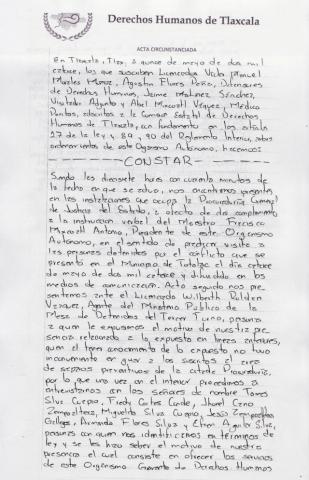 Derechos Humanos de Tlaxcala
ACTA CIRCUNSTANCIADA
En Tlaxcala, Tlax, a quince de mayo de dos mil
catorce, los que suscriben Licenciados Víctor Manuel
Morales Muñoz, Agustín Flores Peña, Defensores
de Derechos Humanos, Jaime Martínez Sánchez,
Visitador Adjunto y Abel Minacatl Vázquez, Médico
Peritos, adscritos a la Comisión Estatal de Derechos
Humanos de Tlaxcala, con fundamento en los artículos
27 de la ley y 89, 90 del Reglamento Interior, sobre
ordenamientos de este Organismo Autónomo, hacemos:
CONSTAR
Siendo las diecisiete horas con cuarenta minutos de
la fecha en que se actúa, nos encontramos presentes
en las instalaciones que ocupa la Procuraduría General
de Justicia del Estado, a efecto de dar cumplimiento
a la instrucción verbal del Maestro Francisco
Mixcoatl Antonio, Presidente de este Organismo
Autónomo, en el sentido de practicar visita a
las personas detenidas por el conflicto que se
presentó en el Municipio de Totolac el día catorce
de mayo de dos mil catorce y difundido en los
medios de comunicación. Acto seguido nos pre-
sentamos ante el Licenciado Wilberth
Vázquez, Agente del Ministerio Público de la
Mesa de Detenidos del Tercer Turno, persona
a quien le expusimos el motivo de nuestra pre-
sencia relacionado a lo expuesto en líneas anteriores,
quien al tener conocimiento de lo expuesto no tuvo
inconveniente en guiar a los suscritos al área
de separos preventivos de la citada Procuraduría,
por lo que una vez en el interior procedimos a
entrevistarnos con los señores de nombre Tomás
Silva Cuapio, Fredy Cortes Conde, Jhovel Cano
Zempalteca, Miguelito Silva Cuapio, Jesús Zempoalteca
Gallegos, Armando Flores Silva y Efren Aguilar Silva,
personas con quien nos identificamos en términos de
ley y se les hizo saber el motivo de nuestra
presencia el cual consiste en ofrecer los servicios
de este Organismo Garante de Derechos Humanos